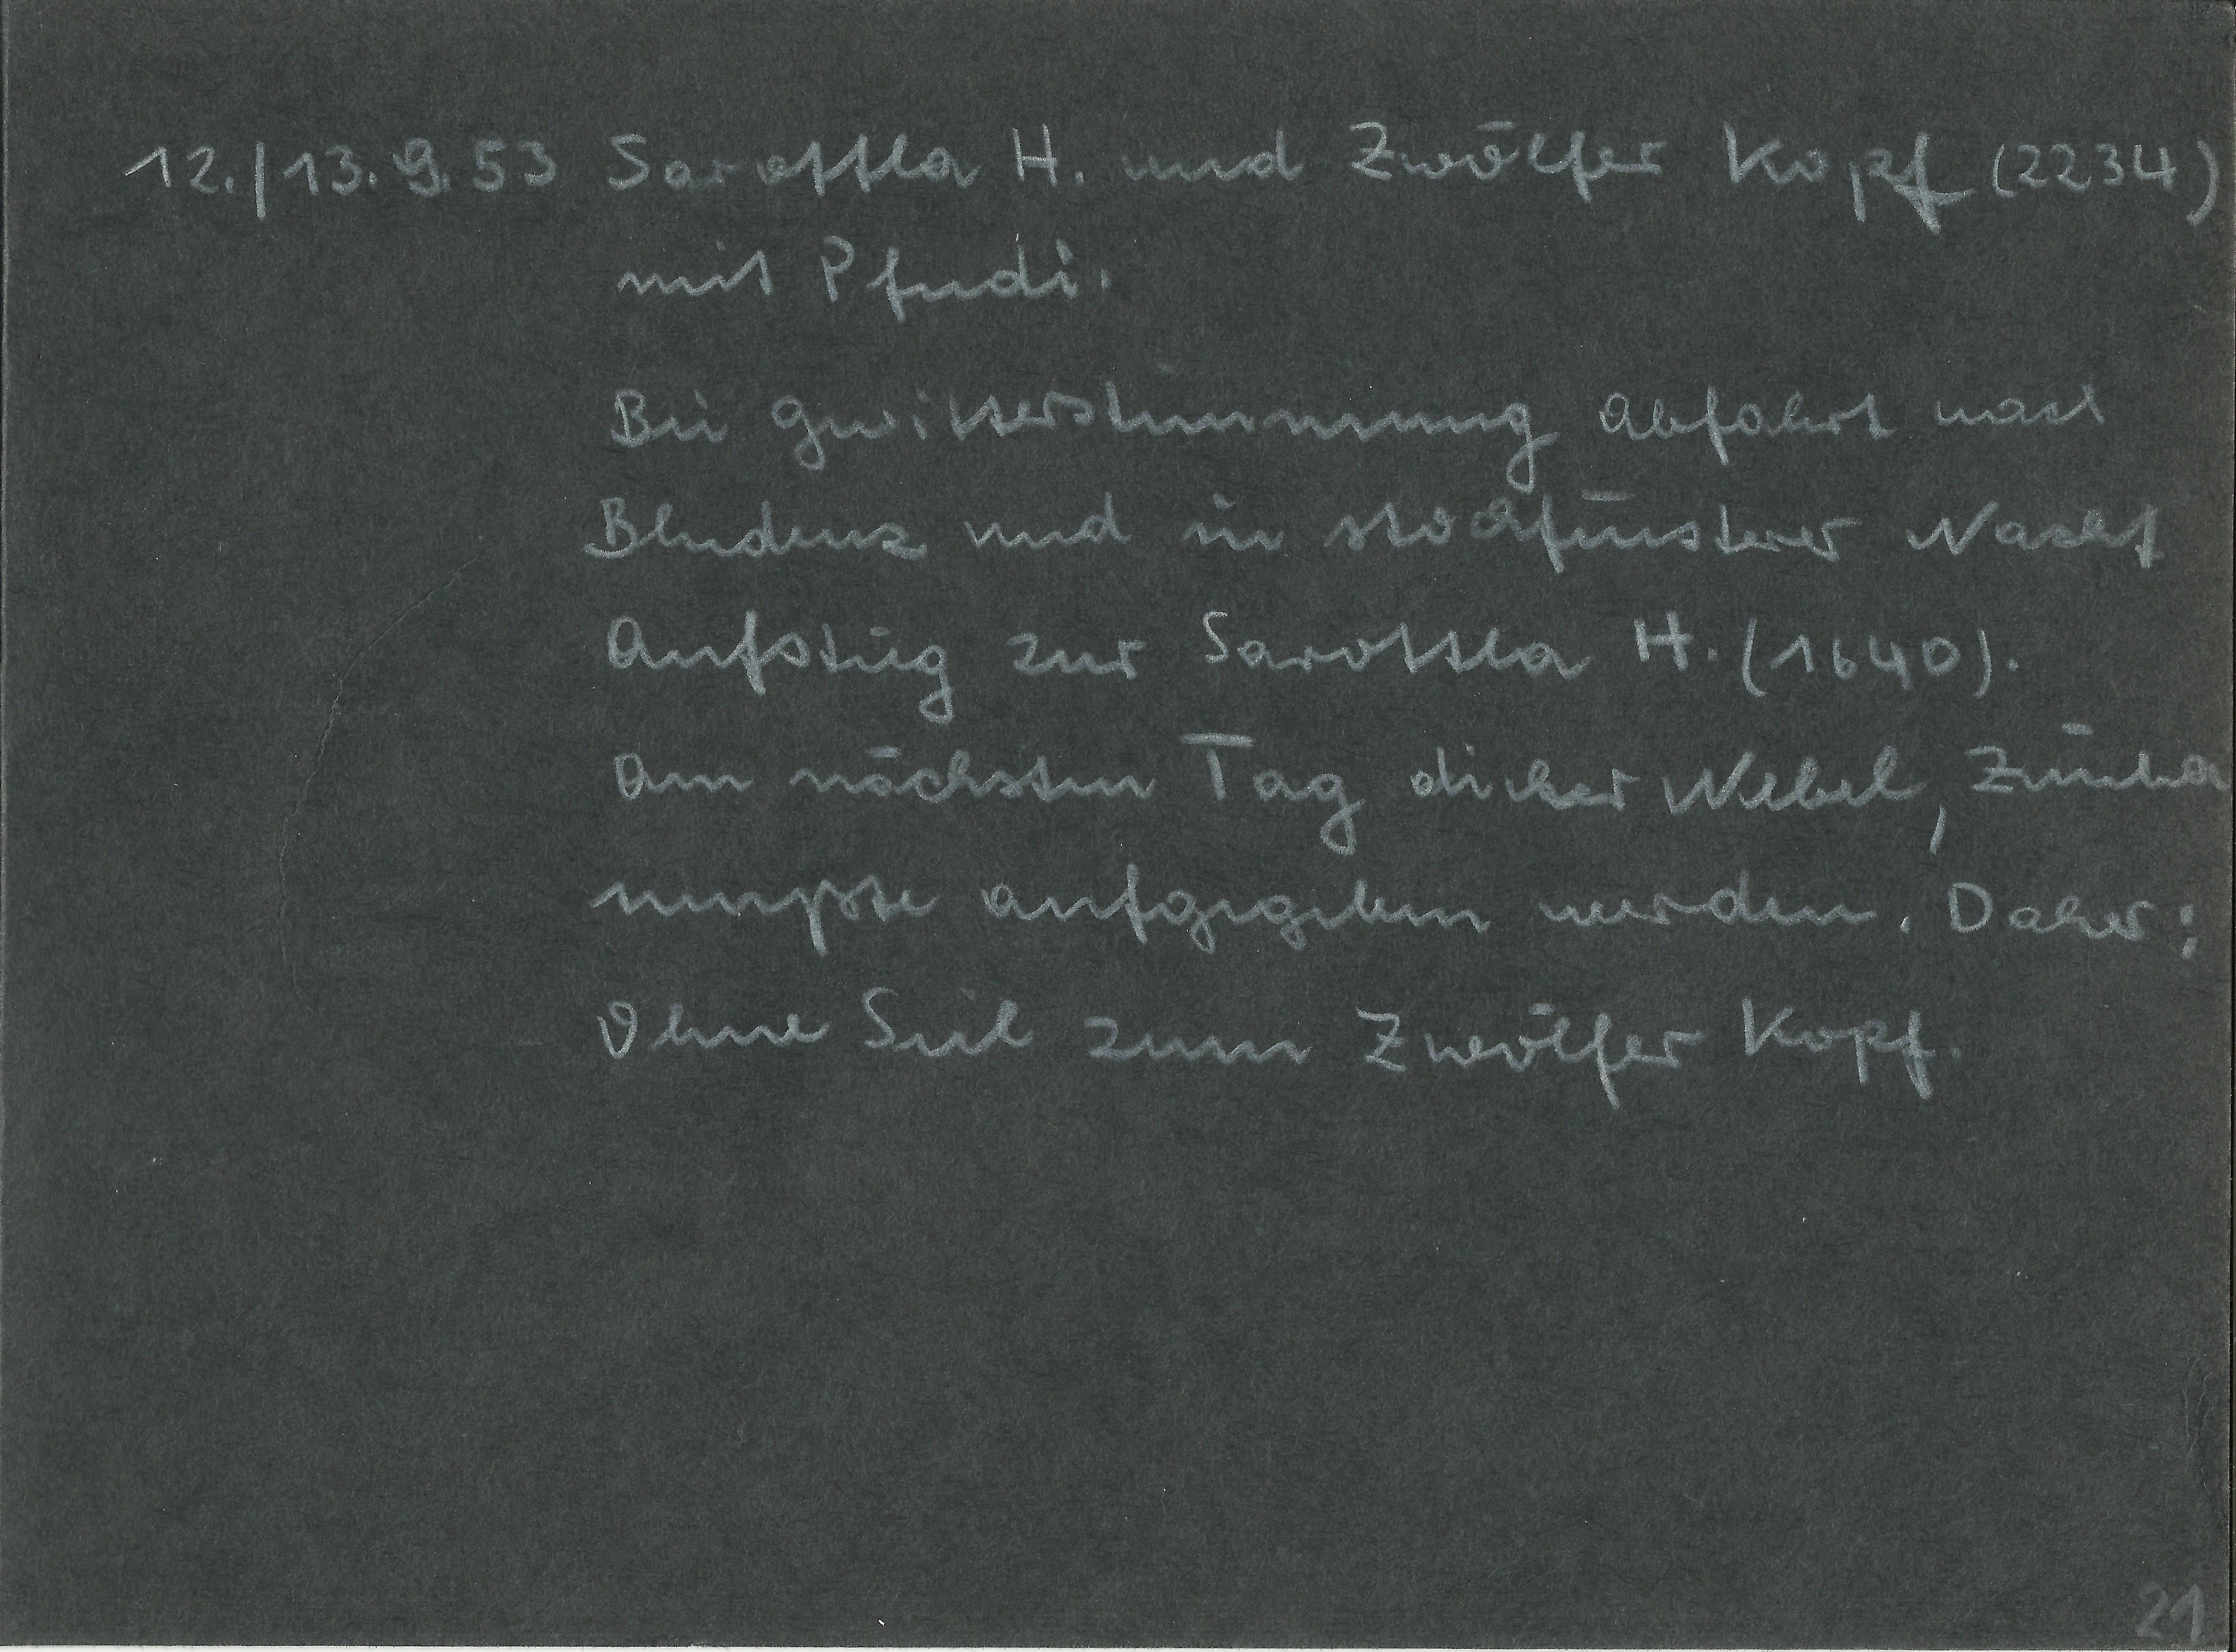 12./13.9.53 Sarottla H. und Zwölfer Kopf (2234)
mit Pfudi.
Bei Gewitterstimmung Abfahrt nach
Bludenz und in stockfinsterer Nacht
Aufstieg zur Sarottla H. (1640).
Am nächsten Tag dicker Nebel, Zimba
musste aufgegeben werden. Daher:
Ohne Seil zum Zwölfer Kopf.
21